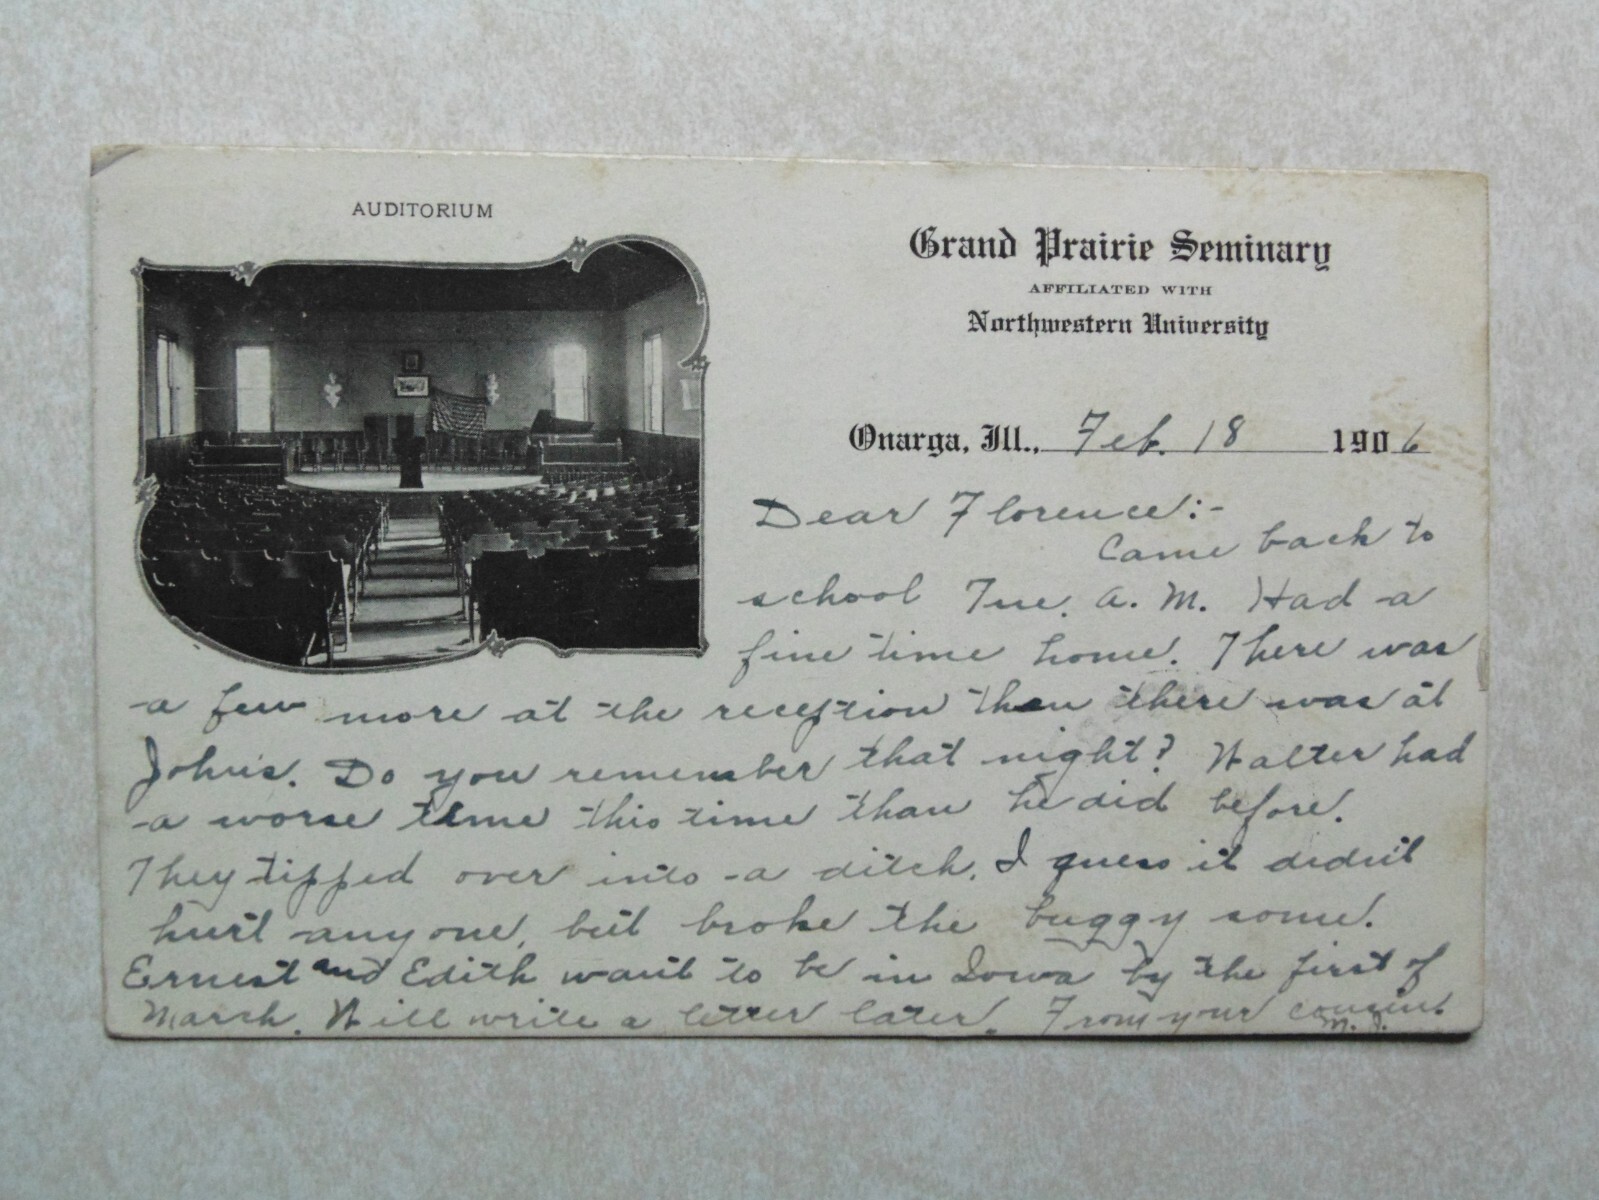 AUDITORIUM
Grand Prairie Seminary
AFFILIATED WITH
Northwestern University
Onarga, Ill., Feb. 18 1906
Dear Florence:-
Came back to
school Tue. A. M. Had a
fine time home. There was
a few more at the reception then there was at
John's. Do you remember that night? Walter had
a worse time this time than he did before.
They tipped over into a ditch. I guess it didn't
hurt anyone, but broke the buggy some.
Ernest and Edith want to be in Iowa by the first of
March. Will write a letter later. From your cousin